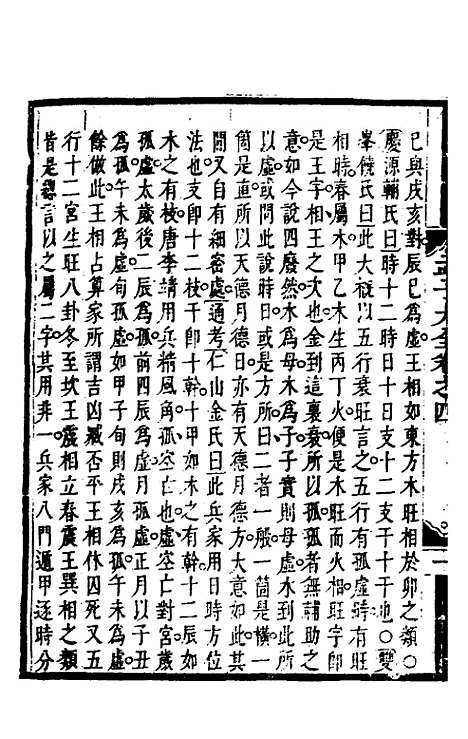 已與戌亥對辰巳爲虛王相如東方木旺相於卯之類○
慶源輔氏曰時十二時日十日支十二支干十干也○雙
峯饒氏曰此大槪以五行衰旺言之五行有孤虛時有旺
相時春屬木甲乙木生丙丁火便是木旺而火相旺字卽
是王字相王之次也金到這裏衰所以孤孤者無輔助之
意如今說四廢然水爲母木爲子子實則母虛水到此所
以虛或問此說時日或以方言曰二者一般一箇是橫一
箇是直所以天德月德日亦有天德月德方大意如此其
間又自有細密處通考仁山金氏曰此兵家用日時方位
法也支卽十二枝干卽十幹十甲如木之有幹十二辰如
木之有枝唐李靖用兵精風角孤空亡也虛空亡對宮歲
孤虛太歲後二辰爲孤前四辰爲虛月孤虛正月以子丑
爲孤午未爲虛旬孤虛如甲子旬則戌亥爲孤午未爲虛
餘倣此王相占算家所謂吉凶臧否平王相休囚死又五
行十二宮生旺八卦冬至坎王震相立春震王巽相之類
皆是總言以之屬二字其用非一兵家八門遁甲逐時分
孟子大全卷之四
一